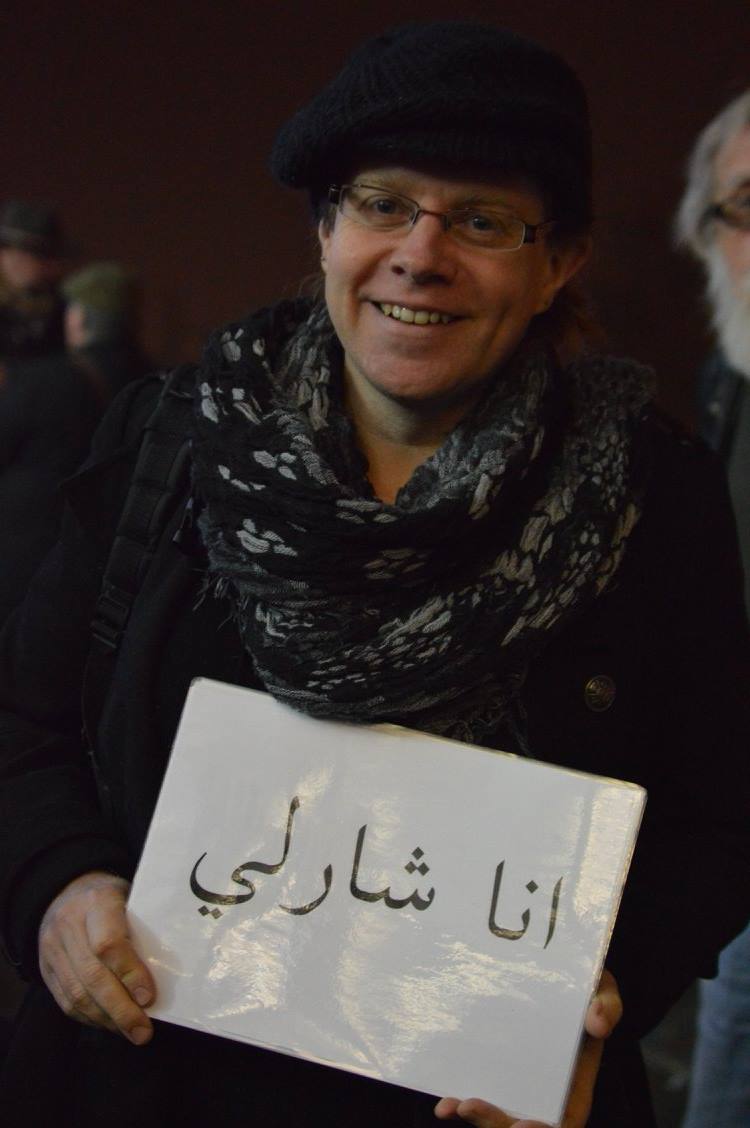 انا شارلي